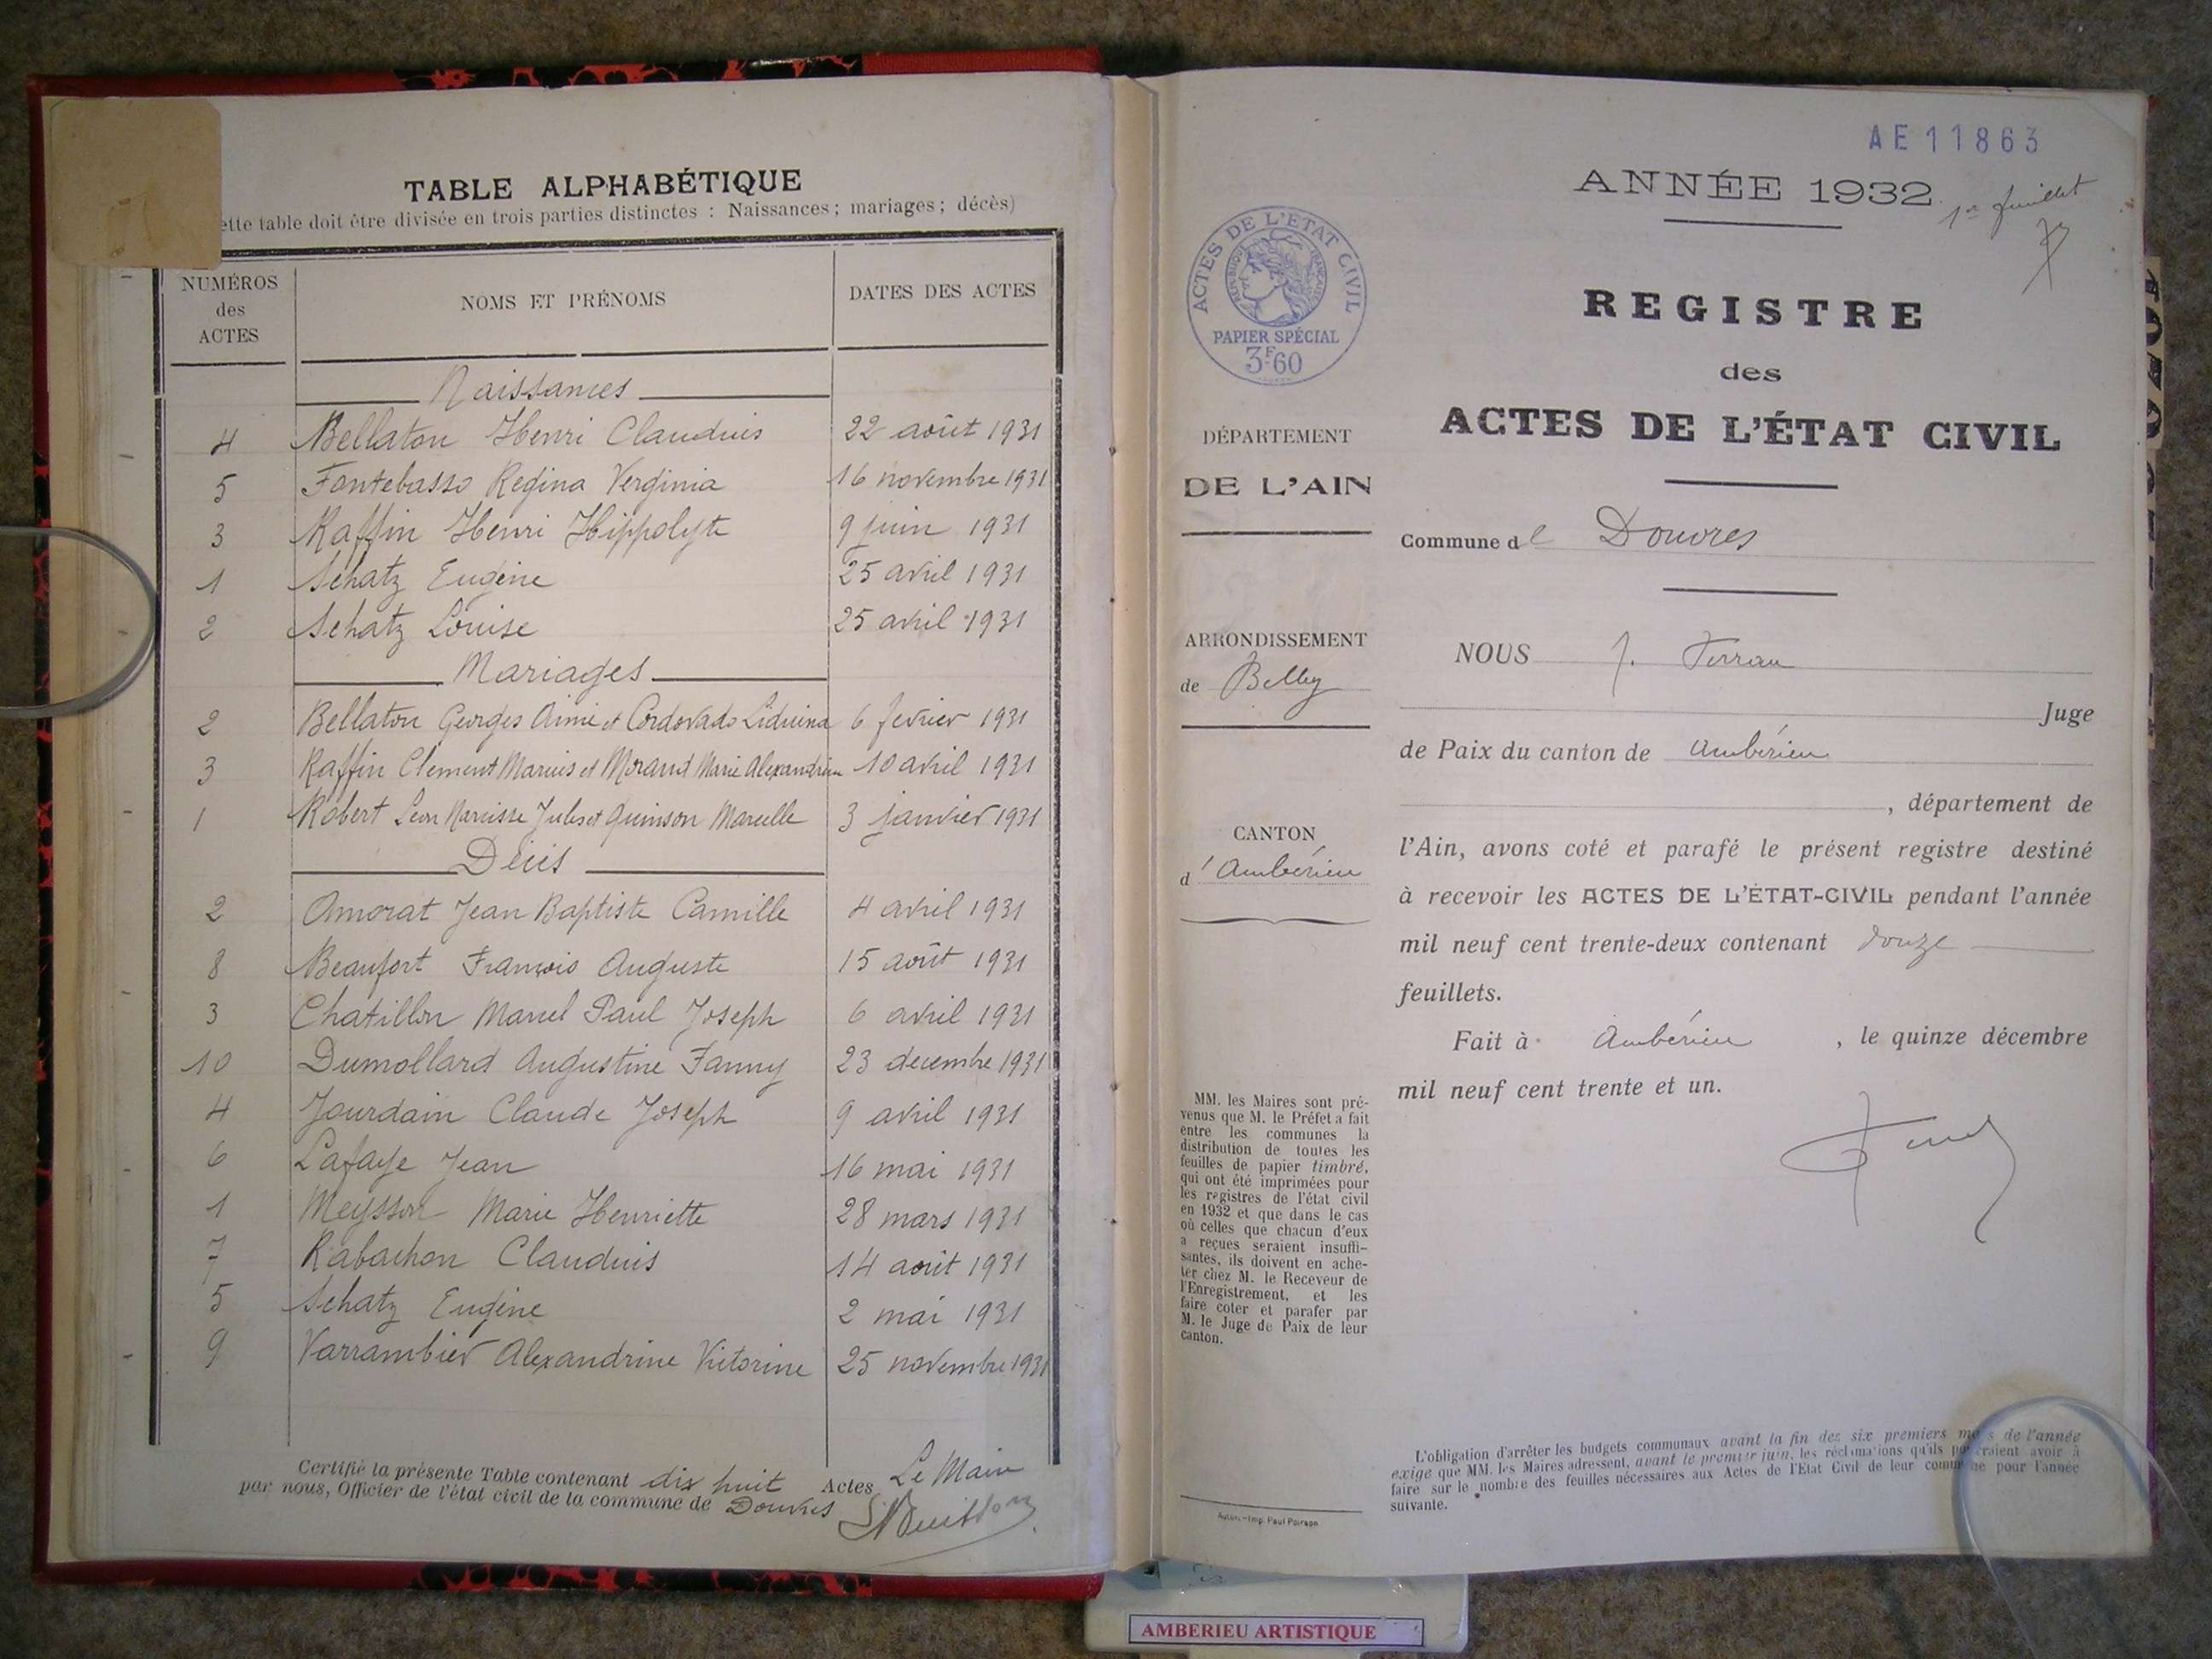 TABLE ALPHABÉTIQUE
ette table doit être divisée en trois parties distinctes : Naissances ; mariages ; décès)
NUMÉROS des ACTES NOMS ET PRÉNOMS DATES DES ACTES
Naissances
4 Bellaton Henri Claudius 22 août 1931
5 Fontebasso Regina Verginia 16 novembre 1931
3 Raffin Henri Hippolyte 9 juin 1931
1 Schatz Eugène 25 avril 1931
2 Schatz Louise 25 avril 1931
Mariages
2 Bellaton Georges Aimé et Cordovado Liduina 6 fevrier 1931
3 Raffin Clement Marius et Morand Marie Alexandrine 10 avril 1931
1 Robert Leon Narcisse Jules et Quinson Marcelle 3 janvier 1931
Décès
2 Amorat Jean Baptiste Camille 4 avril 1931
8 Beaufort François Auguste 15 août 1931
3 Chatillon Marcel Paul Joseph 6 avril 1931
10 Dumollard Augustine Fanny 23 decembre 1931
4 Jourdain Claude Joseph 9 avril 1931
6 Lafaye Jean 16 mai 1931
1 Meysson Marie Henriette 28 mars 1931
7 Rabachon Claudius 14 août 1931
5 Schatz Eugène 2 mai 1931
9 Varrambier Alexandrine Victorine 25 novembre 1931
Certifié la présente Table contenant dix huit Actes
par nous, Officier de l'état civil de la commune de Douvres
Le Maire
AE11863
ANNÉE 1932
1er feuillet
ACTES DE L'ÉTAT CIVIL
RÉPUBLIQUE FRANÇAISE
PAPIER SPÉCIAL
3F60
DÉPARTEMENT
DE L'AIN
ARRONDISSEMENT
de Belley
CANTON
d'Ambérieu
MM. les Maires sont pré-
venus que M. le Préfet a fait
entre les communes la
distribution de toutes les
feuilles de papier timbré,
qui ont été imprimées pour
les registres de l'état civil
en 1932 et que dans le cas
où celles que chacun d'eux
a reçues seraient insuffi-
santes, ils doivent en ache-
ter chez M. le Receveur de
l'Enregistrement, et les
faire coter et parafer par
M. le Juge de Paix de leur
canton.
Autun.-Imp. Paul Poirson
REGISTRE
des
ACTES DE L'ÉTAT CIVIL
Commune de Douvres
NOUS J.
Juge
de Paix du canton de Ambérieu
, département de
l'Ain, avons coté et parafé le présent registre destiné
à recevoir les ACTES DE L'ÉTAT-CIVIL pendant l'année
mil neuf cent trente-deux contenant douze
feuillets.
Fait à Ambérieu , le quinze décembre
mil neuf cent trente et un.
L'obligation d'arrêter les budgets communaux avant la fin des six premiers mois de l'année
exige que MM. les Maires adressent, avant le premier juin, les réclamations qu'ils pourraient avoir à
faire sur le nombre des feuilles nécessaires aux Actes de l'Etat Civil de leur commune pour l'année
suivante.
AMBERIEU ARTISTIQUE